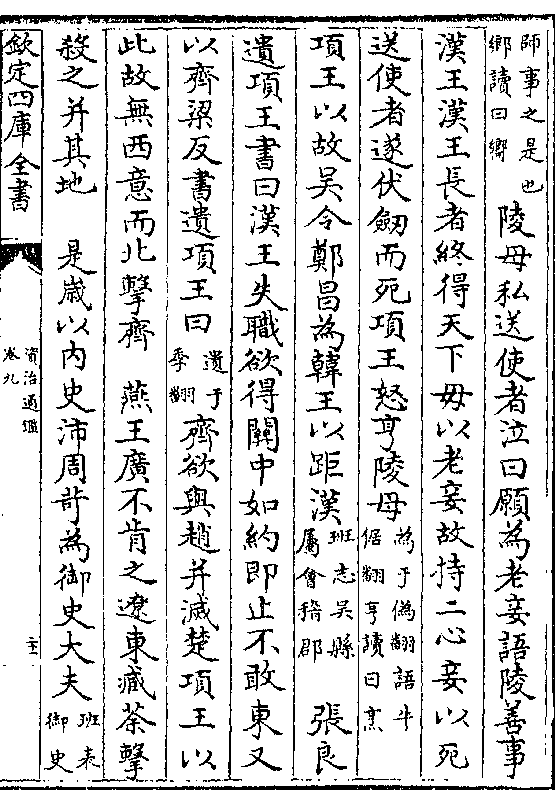 師事之是也鄉讀曰嚮 陵母私送使者泣曰願為老妾語陵善事
漢王漢王長者終得天下毋以老妾故持二心妾以死
送使者遂伏劒而死項王怒亨陵母為于偽翻語牛倨翻亨讀曰烹
項王以故吳令鄭昌為韓王以距漢班志吳縣屬會稽郡 張良
遺項王書曰漢王失職欲得關中如約即止不敢東又
以齊梁反書遺項王曰遺于季翻齊欲與趙并滅楚項王以
此故無西意而北擊齊 燕王廣不肯之遼東臧荼擊
殺之并其地 是歲以内史沛周苛為御史大夫班表御史
欽定四庫全書
資治通鑑
卷九